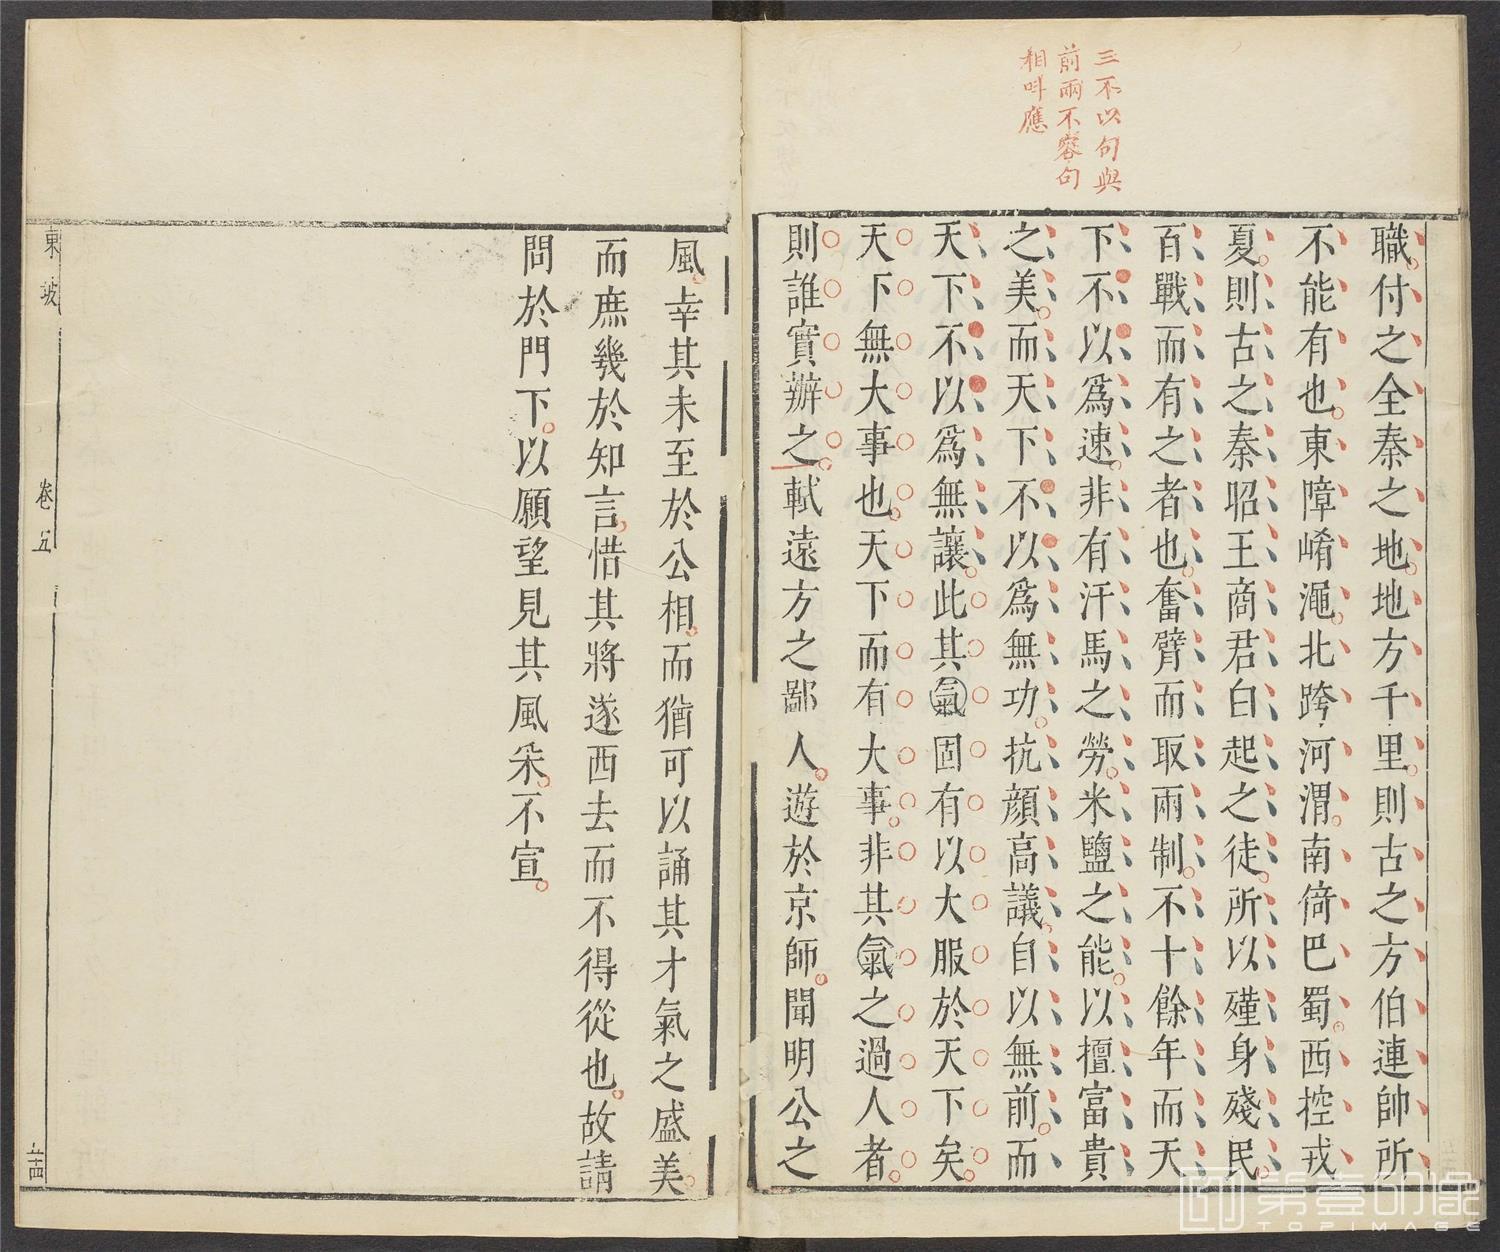 三不以句與
前兩不容句
相呌應
職付之全秦之地地方千里則古之方伯連帥所
不能有也東障崤澠北跨河渭南倚巴蜀西控戎
夏則古之秦昭王商君白起之徒所以殣身殘民
百戰而有之者也奮臂而取兩制不十餘年而天
下不以爲速非有汗馬之勞米鹽之能以擅富貴
之美而天下不以爲無功抗顏高議自以無前而
天下不以爲無讓此其氣固有以大服於天下矣
天下無大事也天下而有大事非其氣之過人者
則誰實辦之軾遠方之鄙人遊於京師聞明公之
風幸其未至於公相而猶可以誦其才氣之盛美
而庶幾於知言惜其將遂西去而不得從也故請
問於門下以願望見其風采不宣
東坡
卷五
五十四
第壹印像
TOPIMAGE